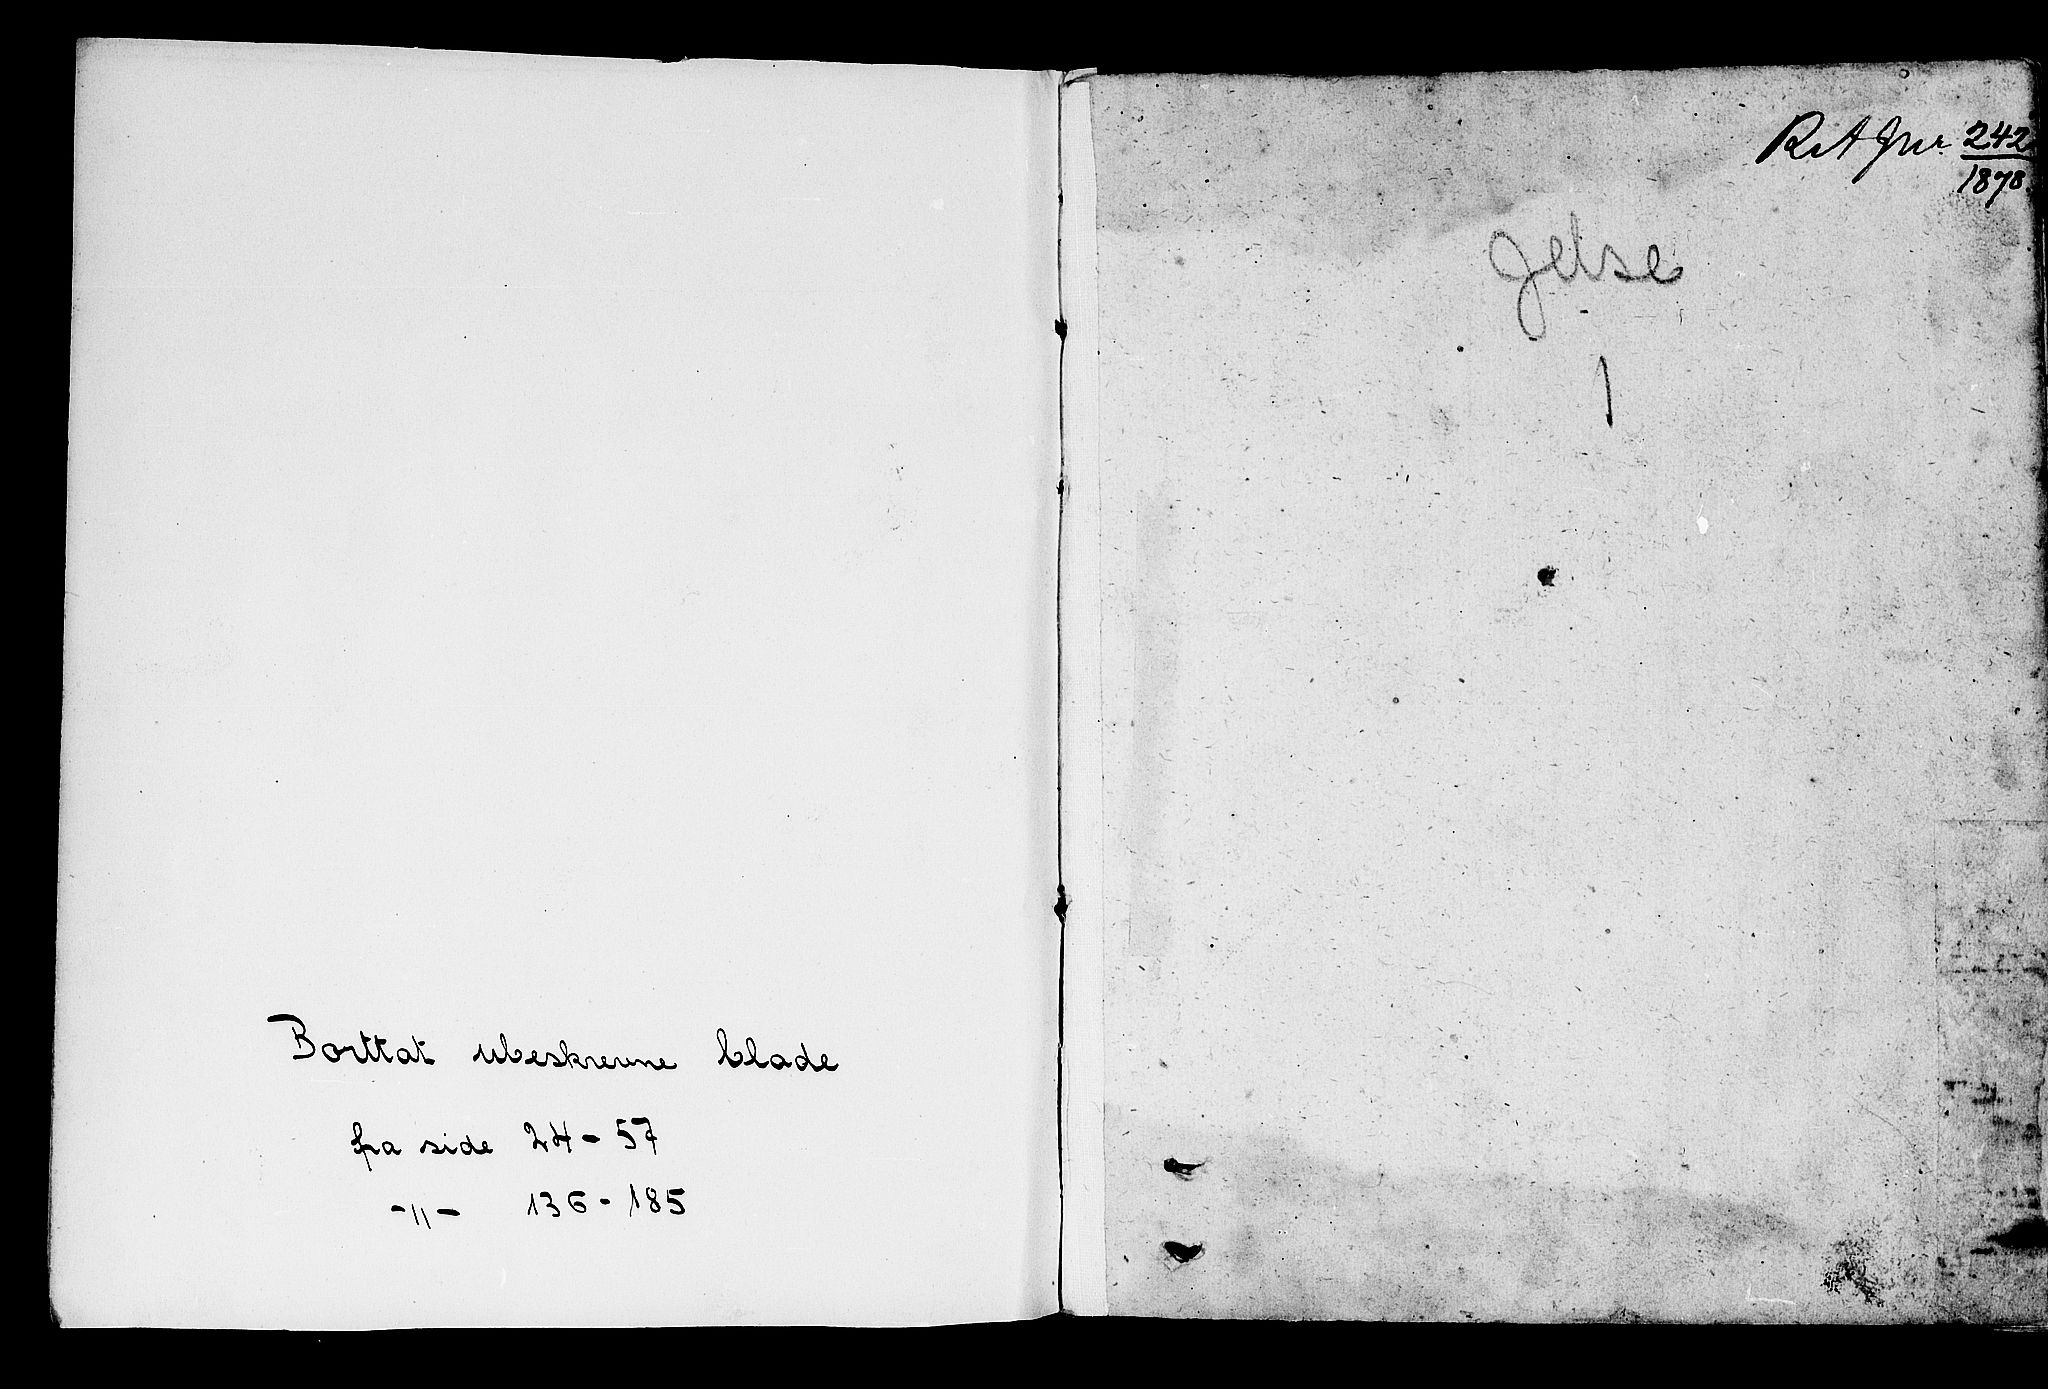 Borttat ubeskrevne blade
fra side 24 - 57
-"- 136 - 185
RA Jnr 242
1878
Jelse
1